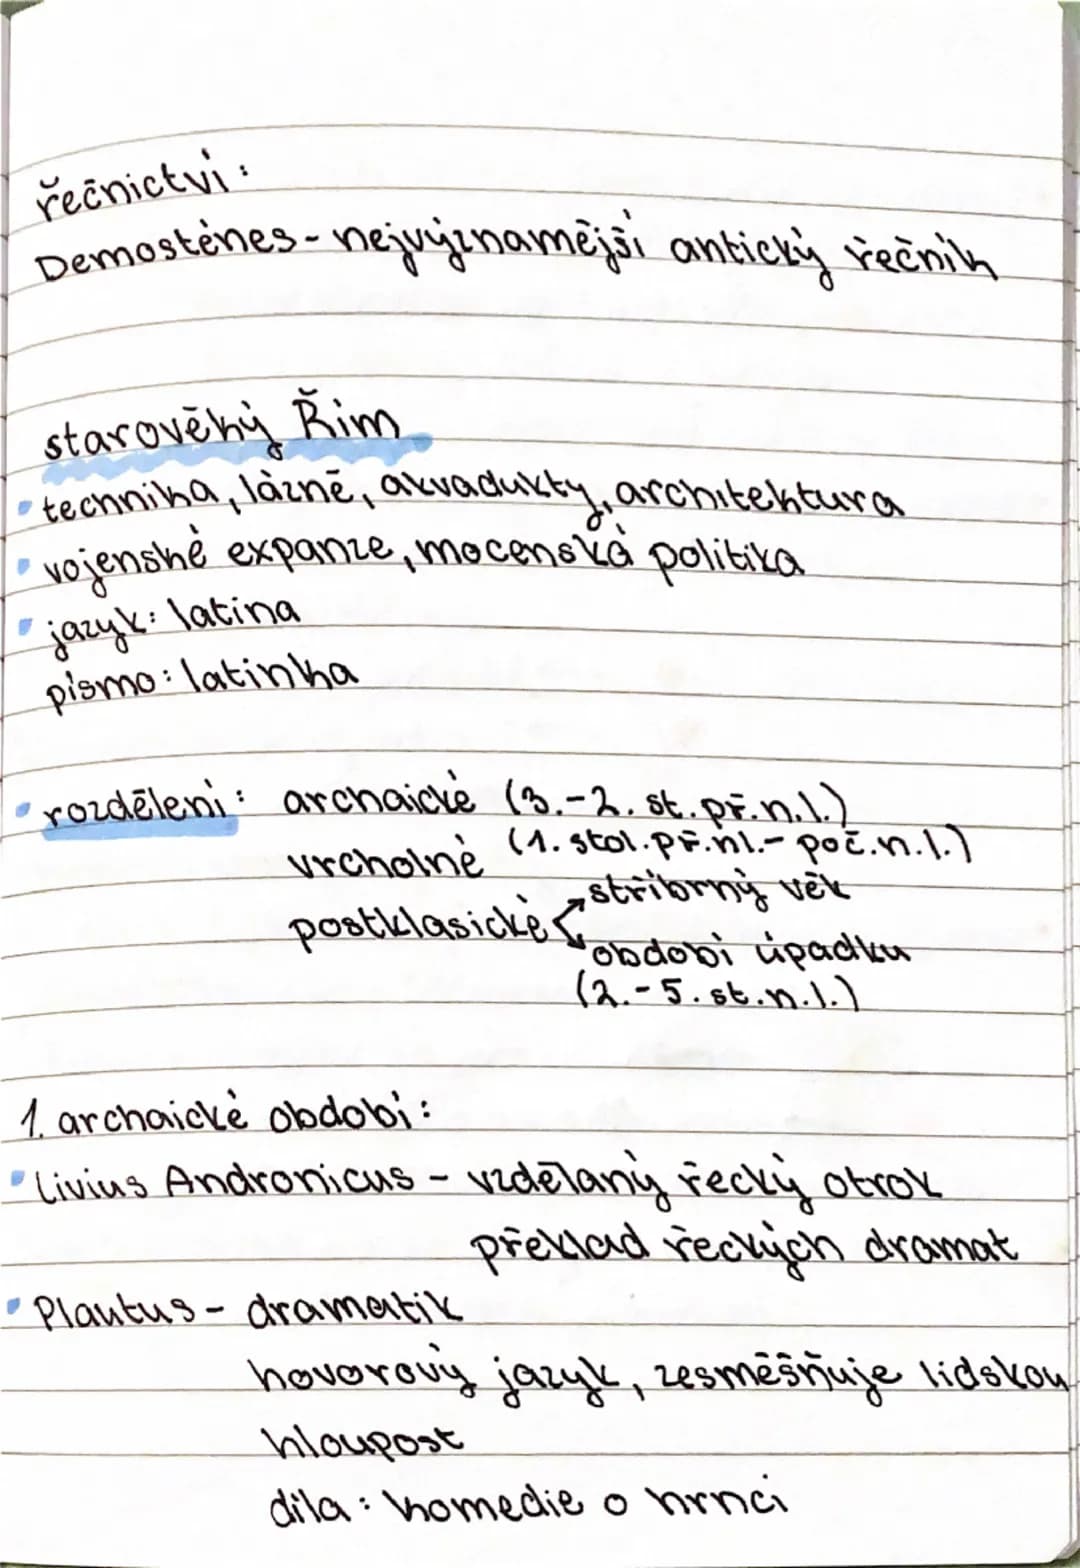 řečnictví:
Demosténes - nejvýznamější antický řečník
starověký Řím
technika, lázně, akvadukty, architektura
vojenské expanze, mocenská politika
jazyk: latina
písmo: latinka
rozdělení: archaické (3.-2. st. př.n.l.)
vrcholné (1. stol. př.nl.- poč.n.l.)
postklasické stříbrný věk
období úpadku
(2.-5. st.n.l.)
1. archaické období:
Livius Andronicus - vzdělaný řecký otrok
překlad řeckých dramat
Plautus - dramatik
hovorový jazyk, zesměšňuje lidskou
hloupost
díla: komedie o hrnci